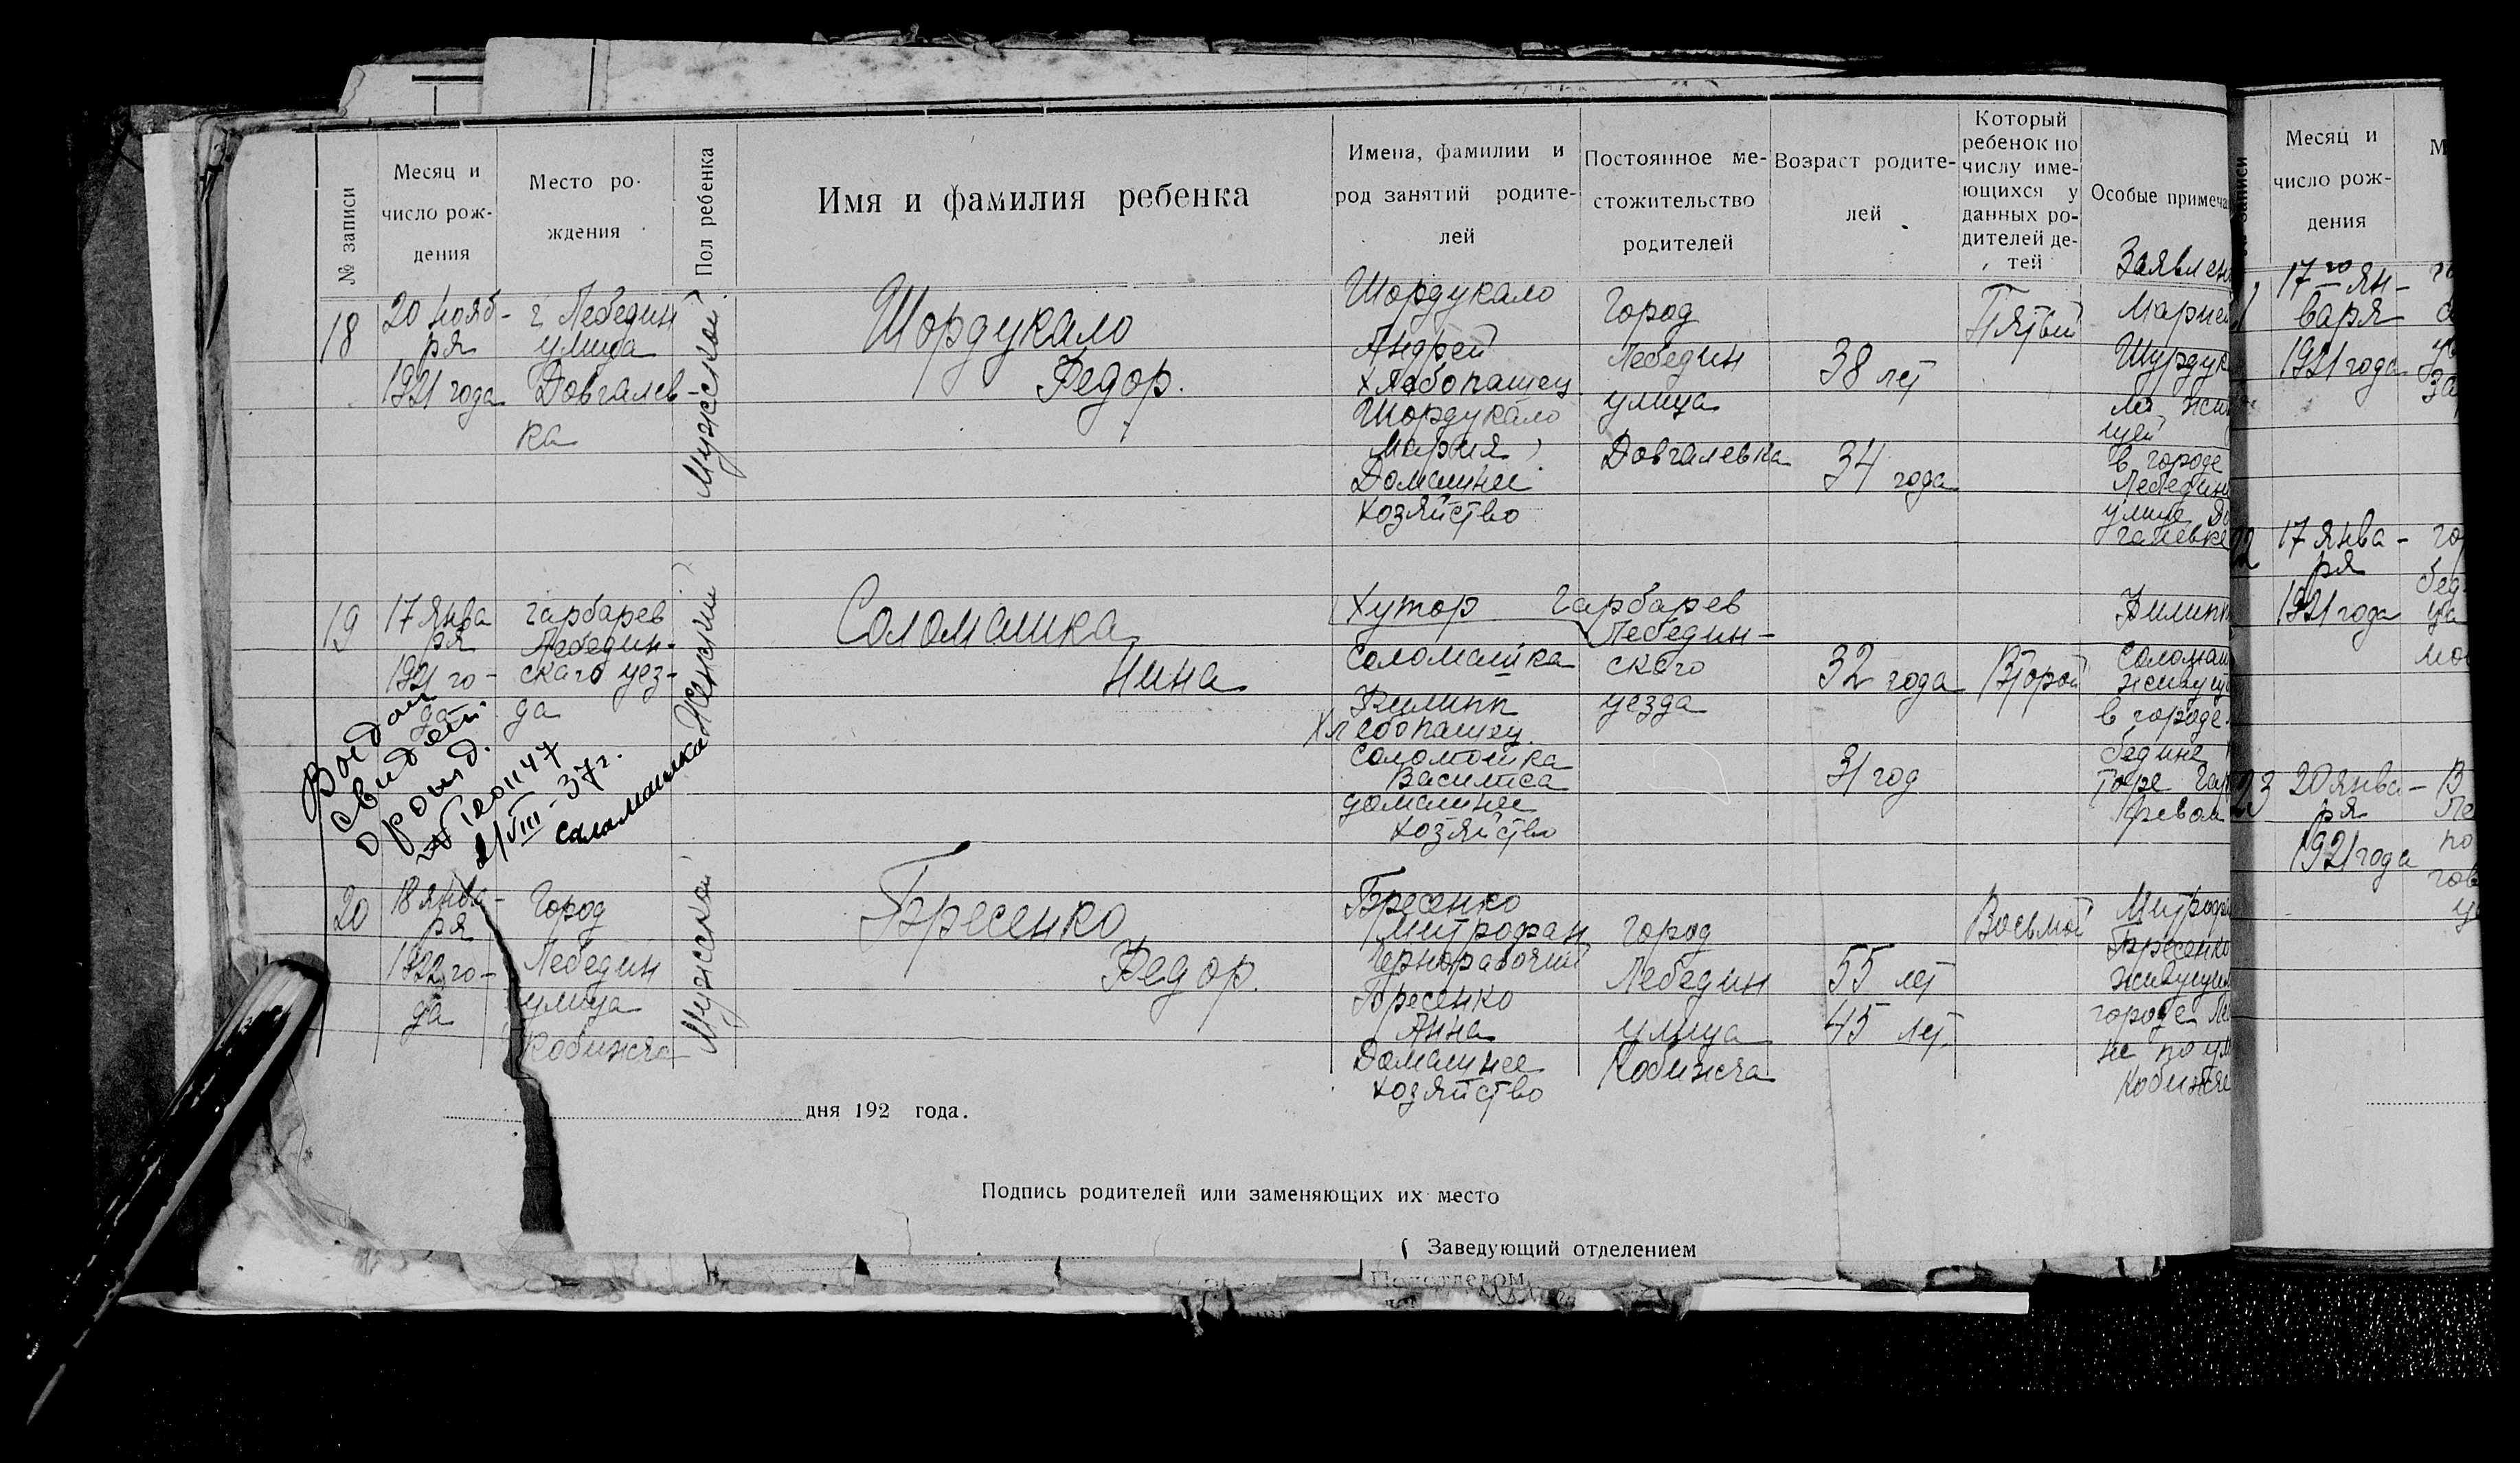 № записи
Месяц и
число рож-
дения
Место ро-
ждения
Пол ребенка
Имя и фамилия ребенка
Имена, фамилии и
род занятий родите-
лей
Постоянное ме-
стожительство
родителей
Возраст родите-
лей
Который
ребенок по
числу име-
ющихся у
данных ро-
дителей де-
тей
Особые примеча
18
20 нояб-
ря
1921 года
г. Лебедин
улица
Довгалев-
ка
Мужской
Шордукало
Федор.
Шордукало
Андрей
Хлебопашец
Шордукало
Мария
Домашнее
хозяйство
Город
Лебедин
улица
Довгалевка
38 лет
34 года
Пятый
Заявлен
Марией
Шурдук
ло, жи
щей
в городе
Лебедин
улице До
галевке
19
17 Янва
ря
1921 го-
да
Гарбарев
Лебедин-
ского уез-
да
Женский
Соломашка
Нина
Хутор Гарбарев
Соломашка
Филипп
Хлебопашец.
Соломашка
Василиса
домашнее
хозяйство
Лебедин-
ского
уезда
32 года
31 год
Второй
Филипп
Соломаш
живущ
в городе
бедине
Выдан
свидет.
о рожд.
21/VIII-37г.
Соломашка
20
18 янва-
ря
1922 го-
да
Город
Лебедин
улица
Кобижча
Мужской
Бресенко
Федор.
Бресенко
Митрофан
Чернорабочий
Бресенко
Анна
Домашнее
хозяйство
город
Лебедин
улица
Кобижча
55 лет
45 лет.
Восьмой
Митроф
Бресенко
живущим
городе Ле
не по ул
Кобижче
дня 192 года.
Подпись родителей или заменяющих их место
Заведующий отделением
Подотделом
записи
Месяц и
число рож-
дения
М
1
17го Ян-
варя
1921 года
22
17 Янва-
ря
1921 года
23
20 янва-
ря
1921 года